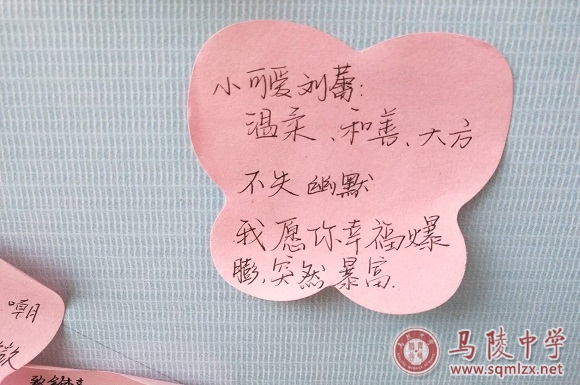 小可爱刘蕾:
温柔、和善、大方
不失幽默
我愿你幸福爆
膨,突然暴富.
嘲
马陵中学
www.sqmlzx.net